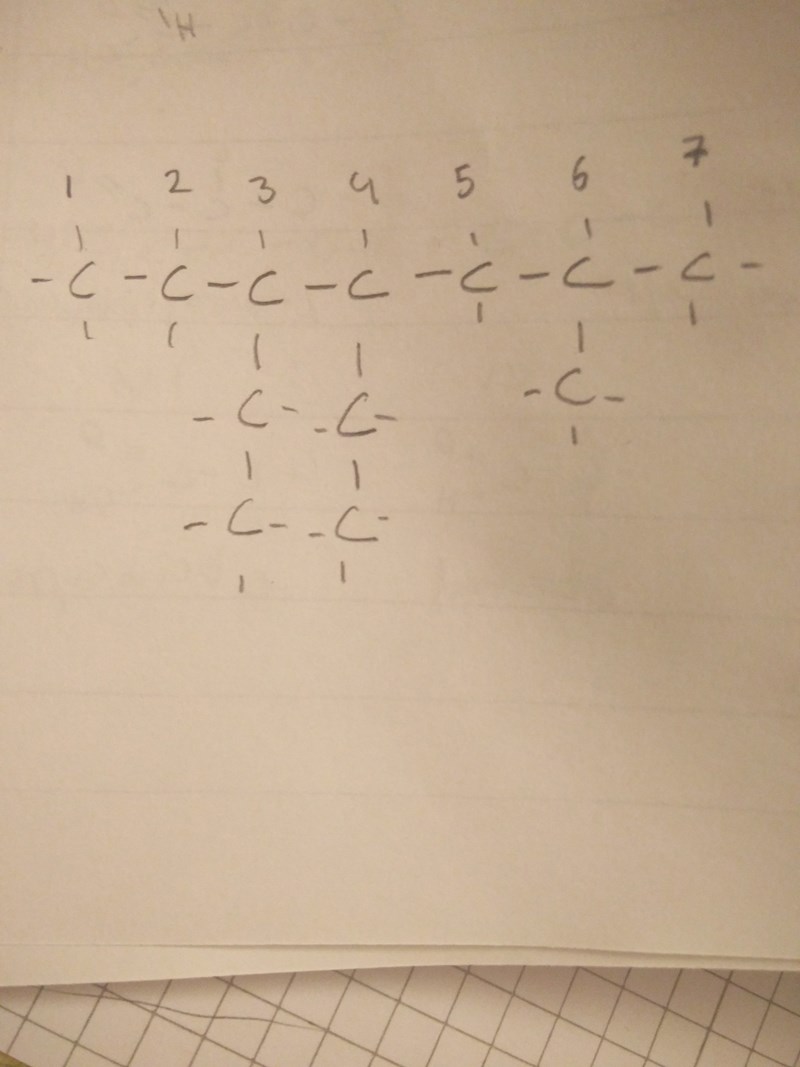 H
1 2 3 4 5 6 7
-C-C-C-C-C-C-C-
-C- -C- -C-
-C- -C-